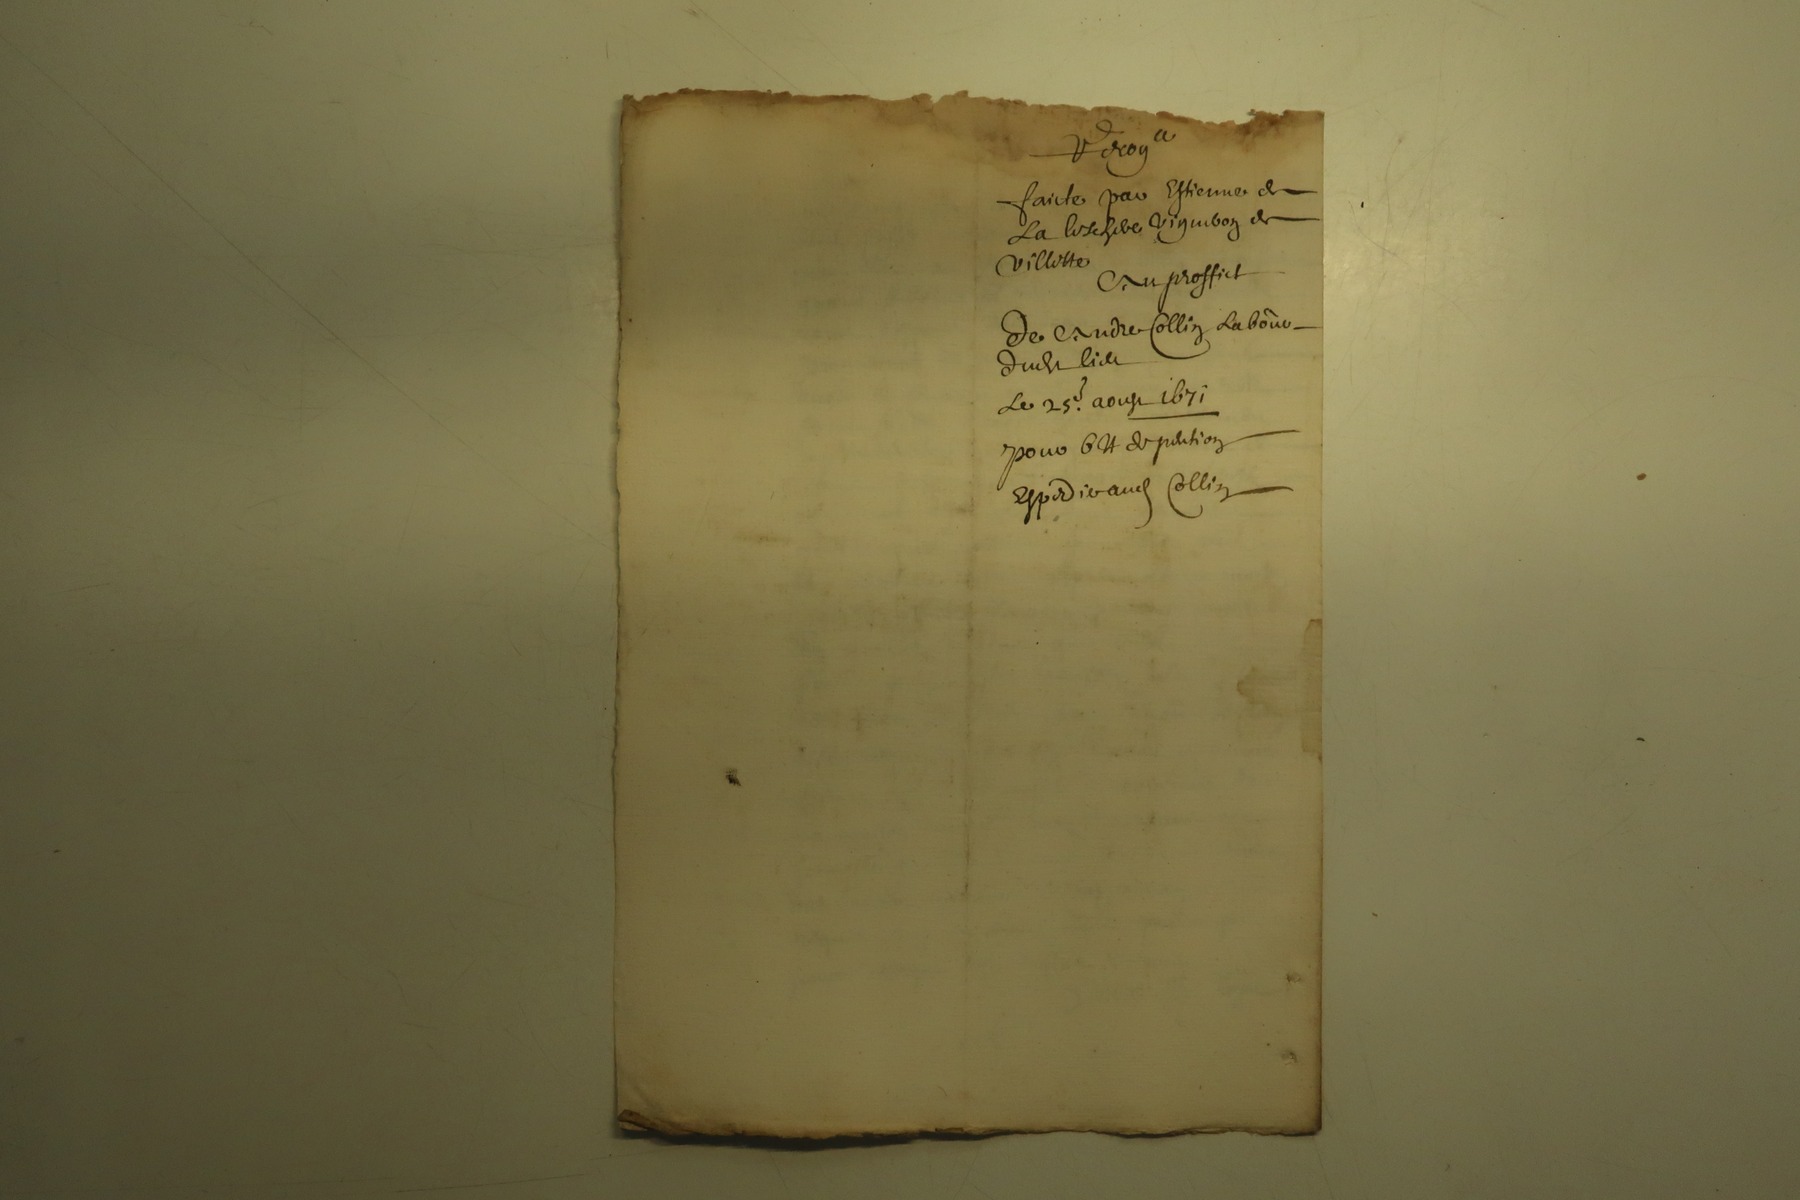 faicte par Estienne de
La vigneron de
Villette
Au proffict
De Andre Collin Labour
dudt lieu
Le 25e. aoust 1671
pour 6 tt de
Expedie aud Collin